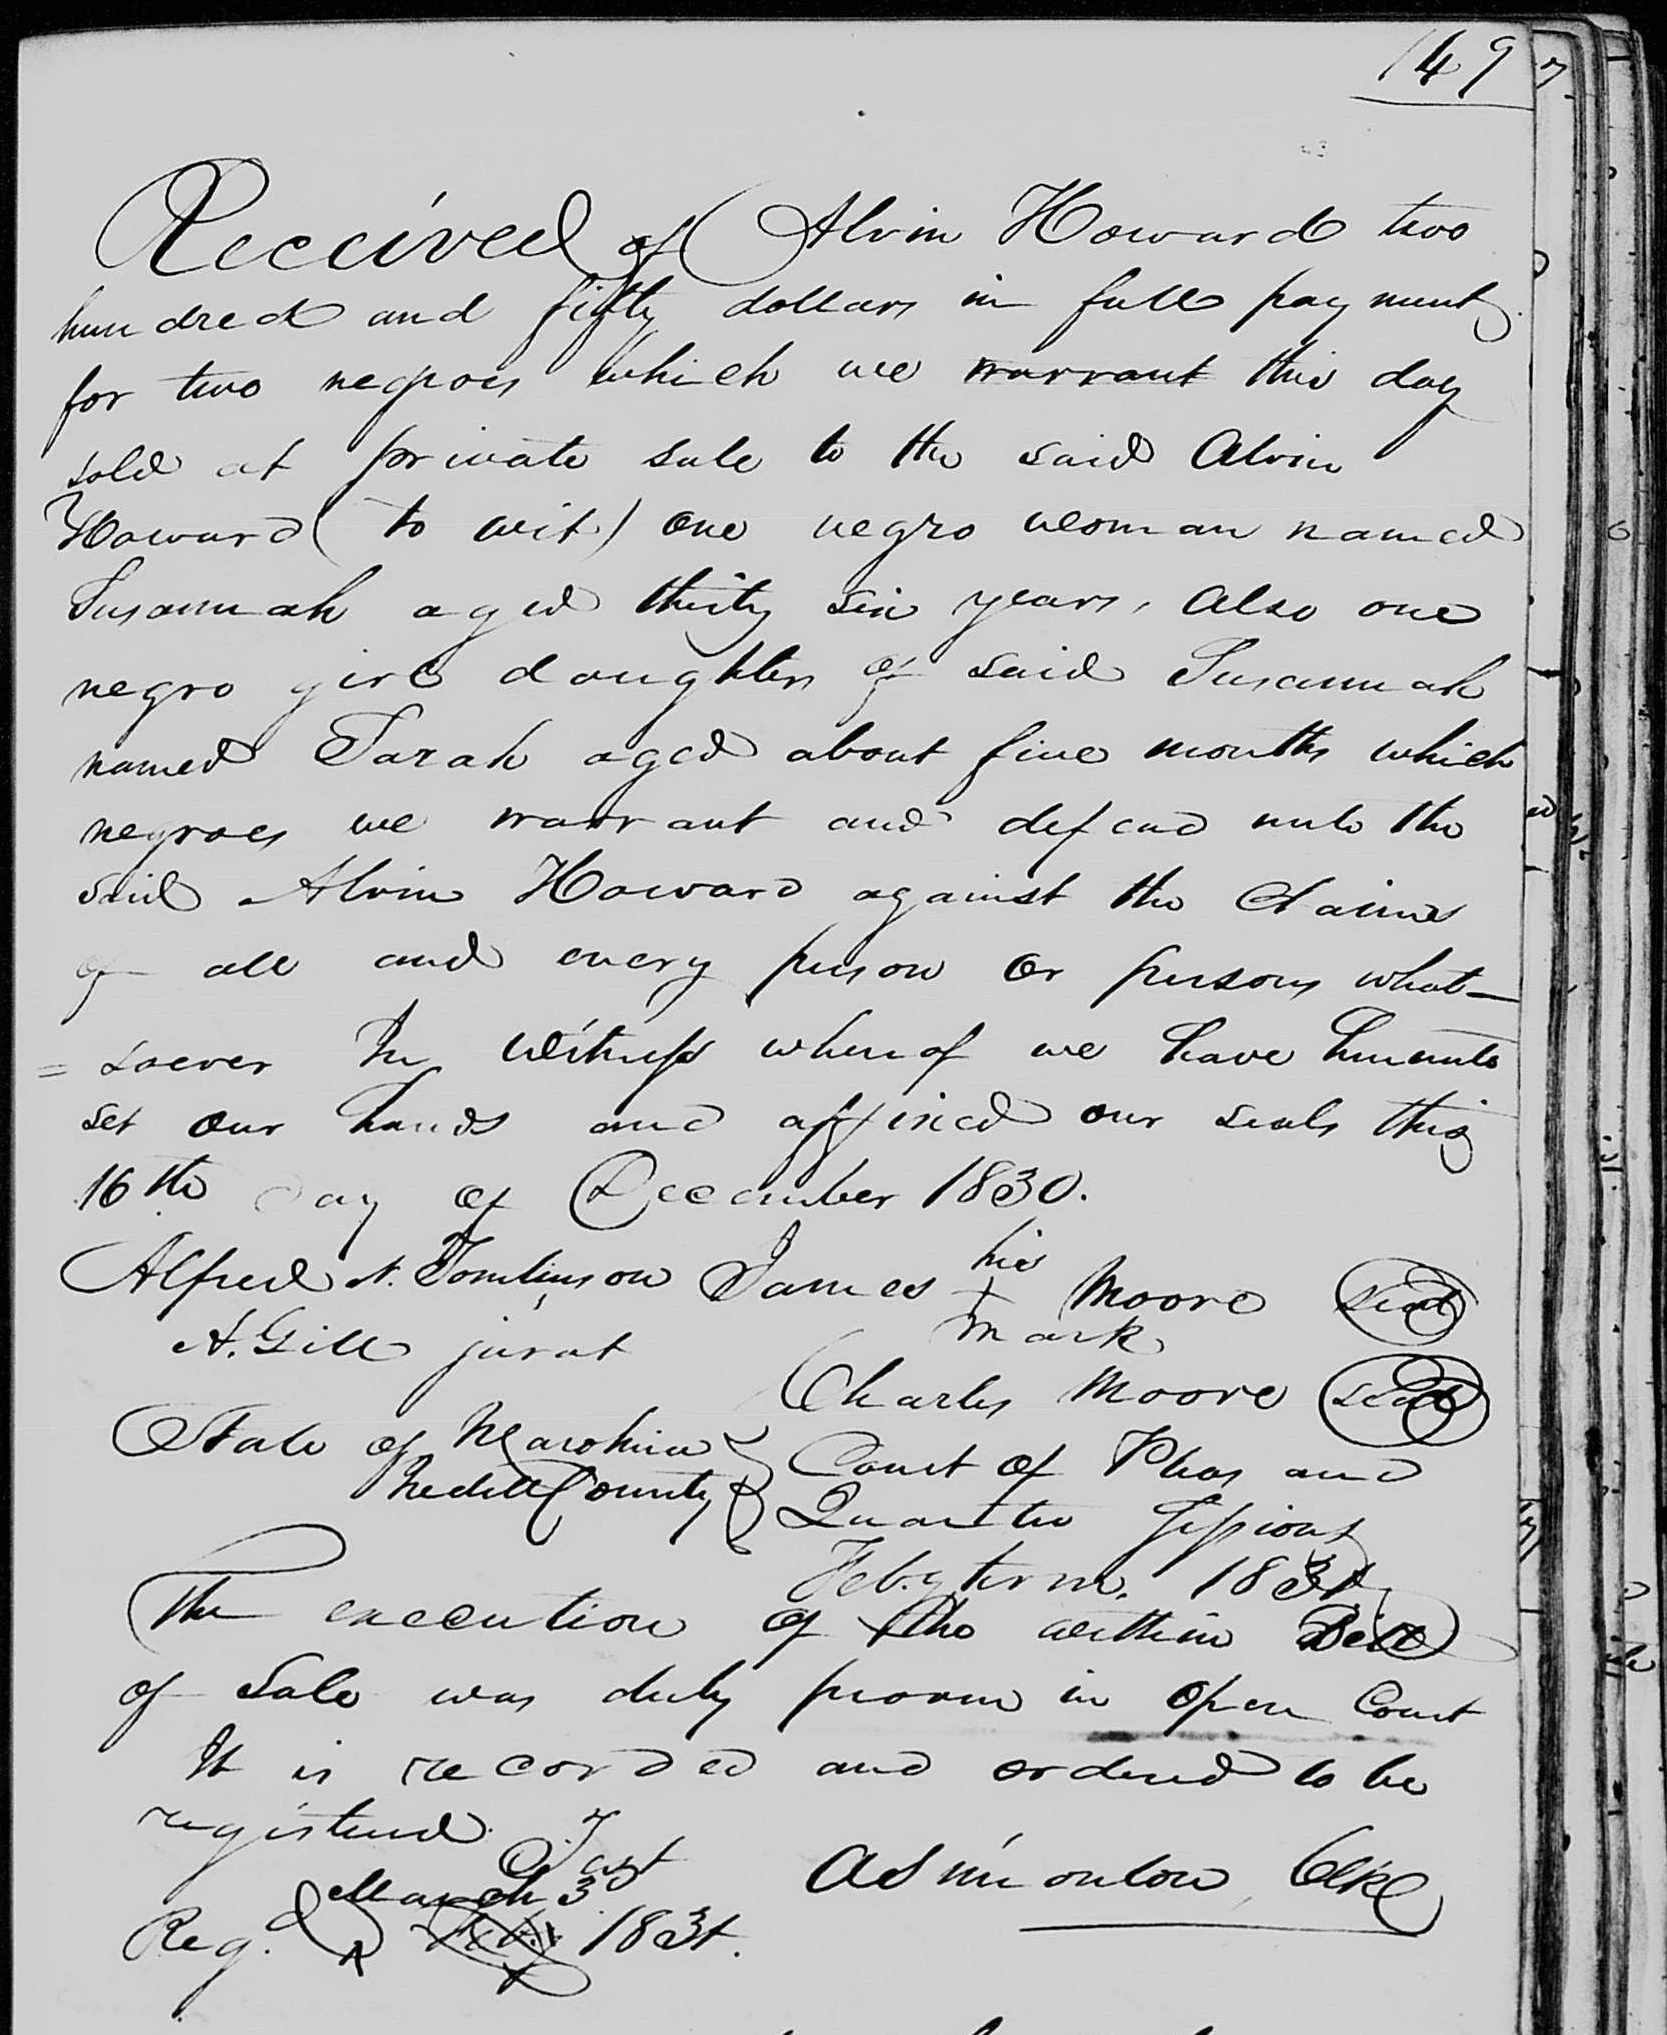 149
Received of Alvin Howard two
hundred and fifty dollars in full payment
for two negroes which we warrant this day
sold at private sale to the said Alvin
Howard (to wit) one negro woman named
Susannah aged thirty six years, Also one
negro girl daughter of said Susannah
named Sarah aged about five months which
negroes we warrant and defend unto the
said Alvin Howard against the Claims
of all and every person or persons what-
= soever In Witness whereof we have hereunto
set our hands and affixed our seals this
16th day of December 1830.
Alfred N. Tomlinson James his + mark Moore seal
A. Gill jurat
Charles Moore seal
State of N Carolina Court of Pleas and
Iredell County Quarter Sessions
Feb.y term. 1831
The execution of the within Bill
of Sale was duly proven in open Court
It is recorded and ordered to be
registered. Test
Clk
March 3
Reg. 1831.